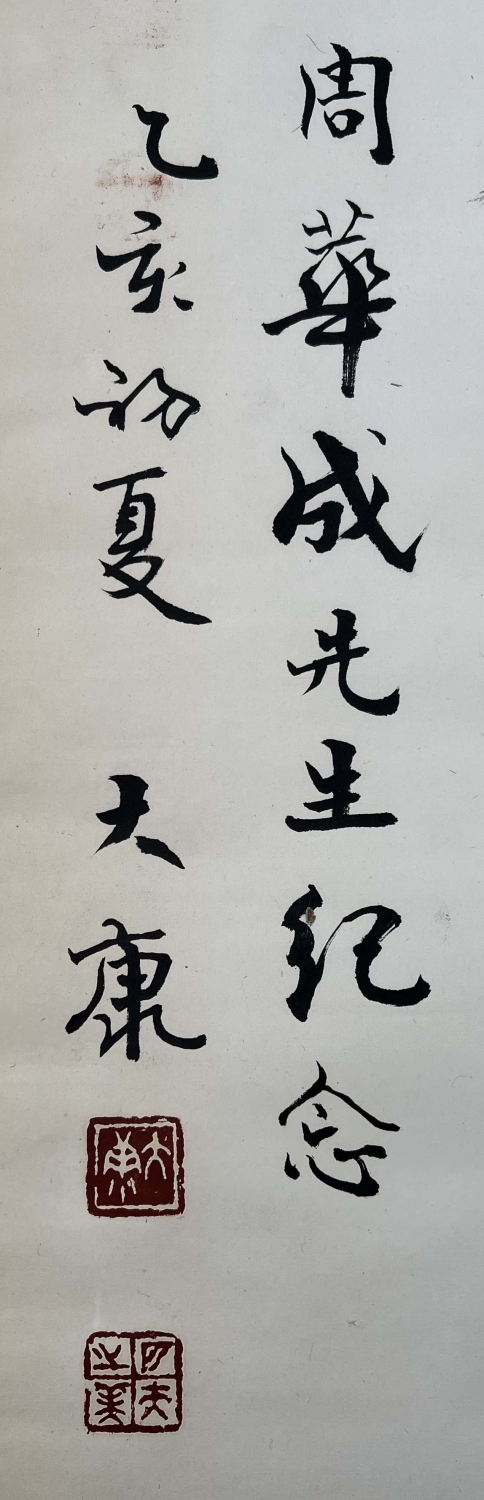 周華成先生纪念
乙亥初夏 大康
大康